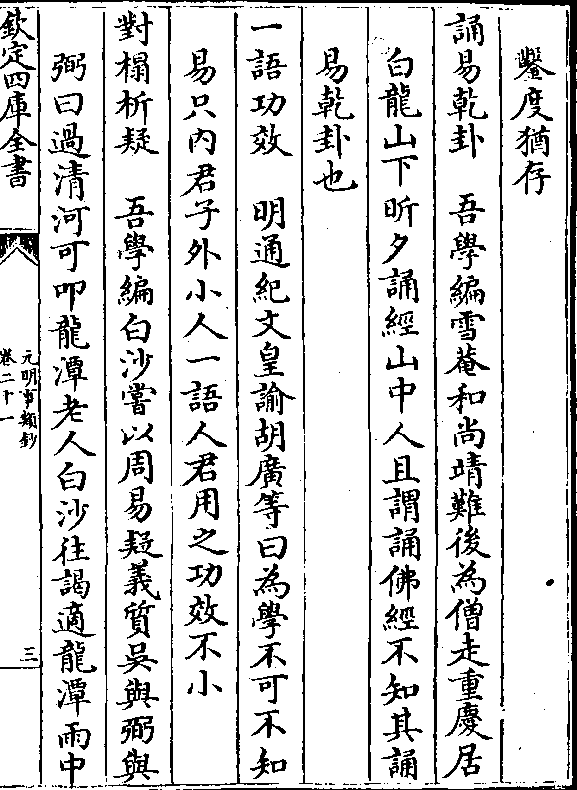 鑿度猶存
誦易乾卦　吾學編雪菴和尚靖難後為僧走重慶居
白龍山下昕夕誦經山中人且謂誦佛經不知其誦
易乾卦也
一語功效　明通紀文皇諭胡廣等曰為學不可不知
易只內君子外小人一語人君用之功效不小
對榻析疑　吾學編白沙嘗以周易疑義質吳與弼與
弼曰過清河可叩龍潭老人白沙往謁適龍潭雨中
欽定四庫全書
元明事類鈔
卷二十一
三